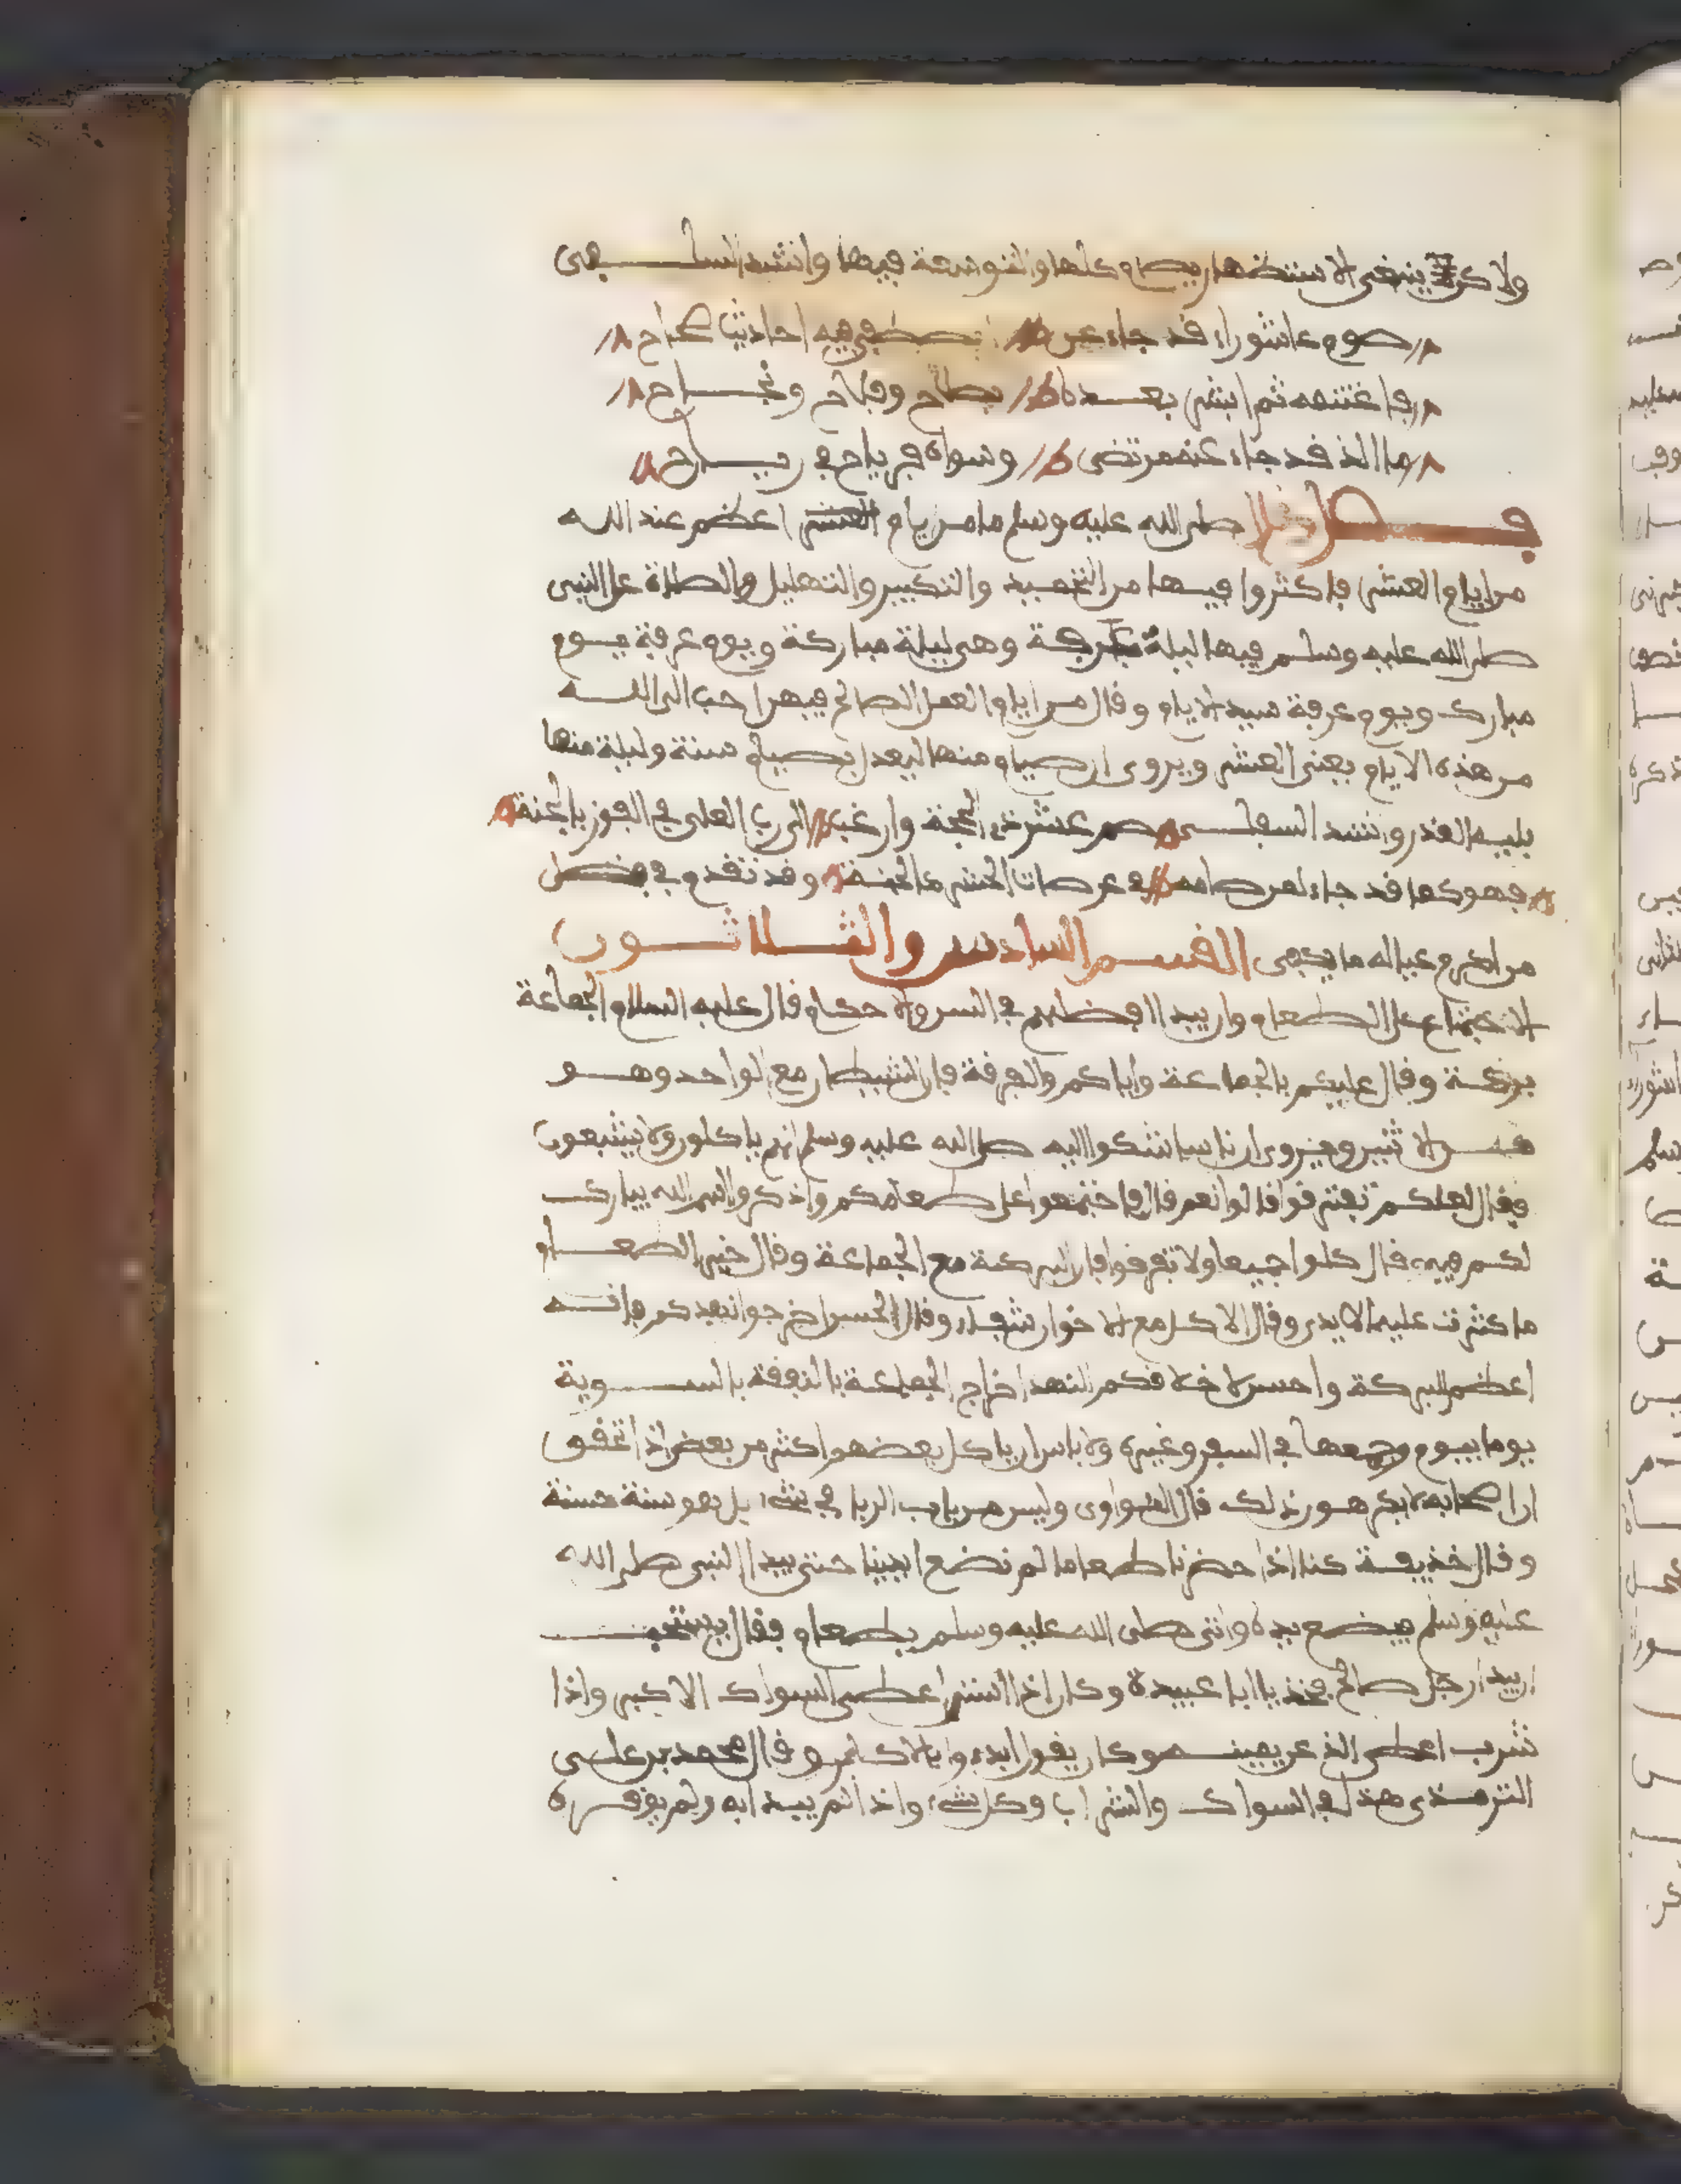 ولاكن ينبغي الاستنضهار بصوم كلها والتوسعة فيها وانشد السلفي
صوم عاشوراء قد جاء عن المصطفى فيه احاديث صحاح
فاغتنمه ثم ابشر بعده بصلاح وفلاح ونجاح
ما الذ قد جاء عنه مرتضى وسواه في رياح في رياح
فصل قال صلى الله عليه وسلم ما من ايام العشر اعظم عند الله
من ايام العشر فاكثروا فيها من التحميد والتكبير والتهليل والصلاة على النبي
صلى الله عليه وسلم فيها ليلة عرفة وهي ليلة مباركة ويوم عرفة يوم
مبارك ويوم عرفة سيد الايام وقال من ايام العمل الصالح فيهن احب الى الله
من هذه الايام يعني العشر ويروى ان صيام منها ليعدل بصيام سنة وليلة منها
بليلة القدر وانشد السلفي صم عشر ذي الحجة وارغبن الى رب العلى في الفوز بالجنة
فهو كما قد جاء لمن صامه في عرصات الحشر كالجنة وقد تقدم في فضل
من اكرم عياله ما يكفي القسم السادس والثلاثون
الاجتماع على الطعام وان يبدا افضلهم في السن والاحكام قال عليه السلام الجماعة
بركة وقال عليكم بالجماعة واياكم والفرقة فان الشيطان مع الواحد وهو
من الاثنين ويروى ان ناسا شكوا اليه صلى الله عليه وسلم انهم ياكلون ولا يشبعون
فقال لعلكم تفترقوا قالوا نعم قال فاجتمعوا على طعامكم واذكروا اسم الله يبارك
لكم فيه قال كلوا جميعا ولا تفرقوا فان البركة مع الجماعة وقال خير الطعام
ما كثرت عليه الايدي وقال الاكل مع الاخوان شفاء وقال الحسن اخرجوا نهدكم فانه
اعظم للبركة واحسن لاخلاقكم النهد اخراج الجماعة بالنفقة بالسوية
يوما بيوم وجمعها في السفر وغيره ولا باس ان ياكل بعضهم اكثر من بعض اذا تحقق
ان اصحابه لا يكرهون ذلك قال النواوي وليس من باب الربا في شيء بل هو سنة حسنة
وقال حذيفة كنا اذا حضرنا طعاما لم نضع ايدينا حتى يبدا النبي صلى الله
عليه وسلم فيضع يده واتي صلى الله عليه وسلم بطعام فقال
رجل صالح فخذ يا ابا عبيدة وكان اذا استن اعطى السواك الاكبر واذا
شرب اعطى الذ عن يمينه وكان يقول ابدءوا بالاكبر وقال محمد بن علي
الترمذي هذا في السواك والشراب وكل شيء واذا لم يبدا به ولم يوقره